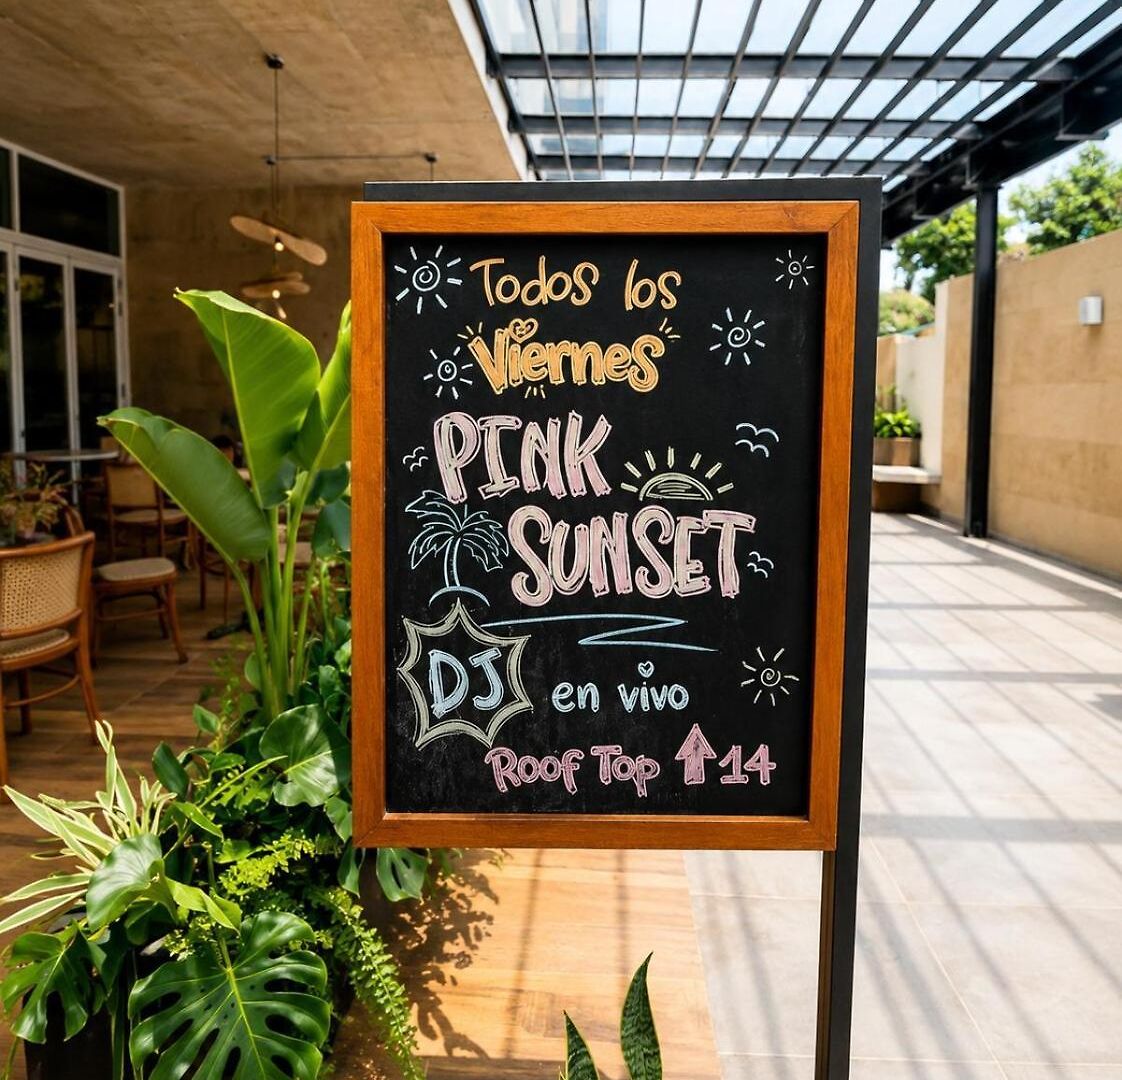 Todos los
Viernes
PINK
SUNSET
DJ en vivo
Roof Top ⬆ 14